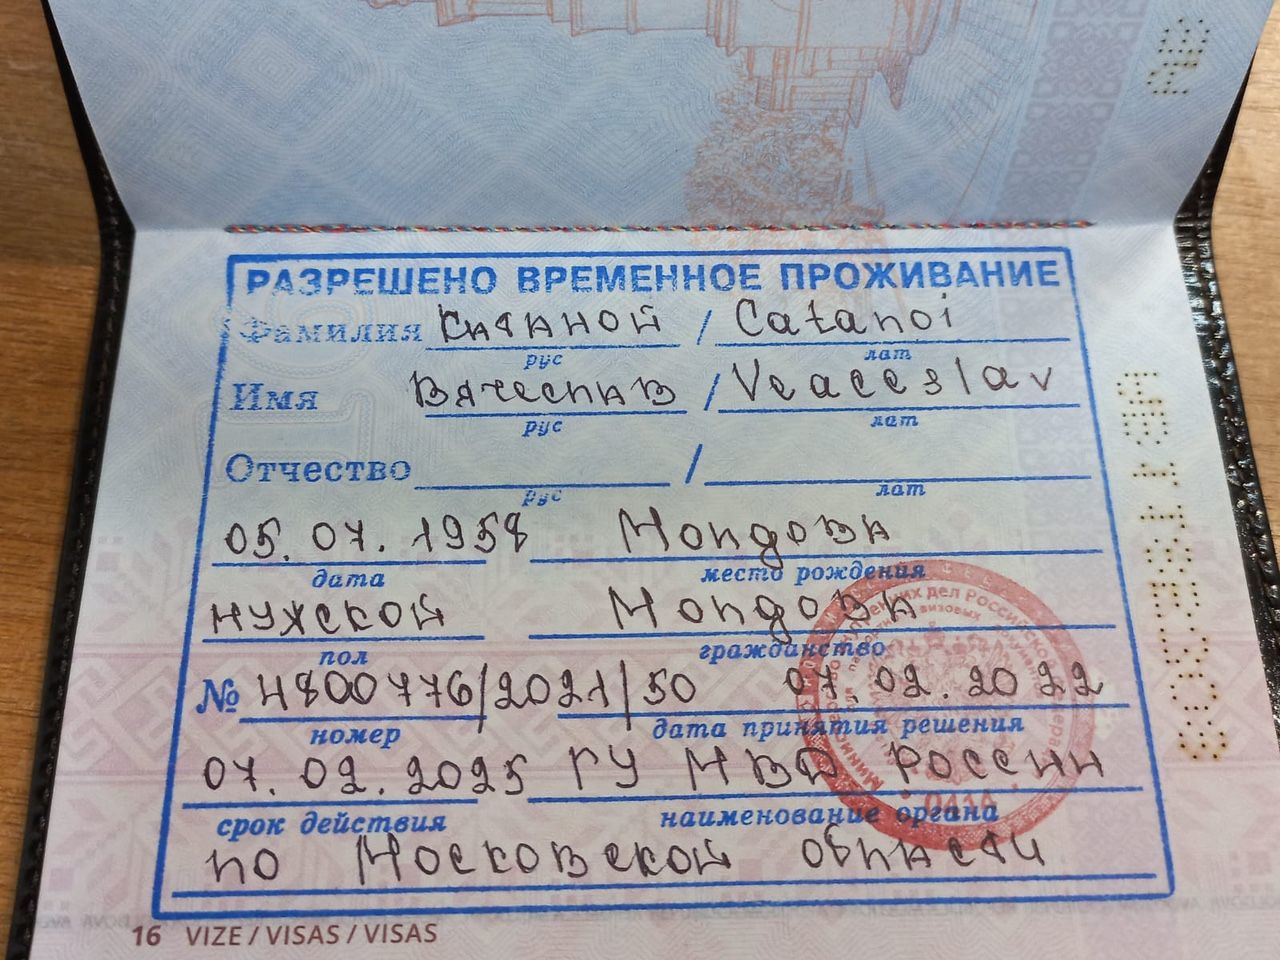 РАЗРЕШЕНО ВРЕМЕННОЕ ПРОЖИВАНИЕ
Фамилия Катаной / Catanoi
рус лат
Имя Вячеслав / Veaceslav
рус лат
Отчество /
рус лат
05.07.1958 Молдова
дата место рождения
мужской Молдова
пол гражданство
№ 4800776/2021/50 07.02.2022
номер дата принятия решения
07.02.2025 ГУ МВД России
срок действия наименование органа
по Московской области
16 VIZE / VISAS / VISAS